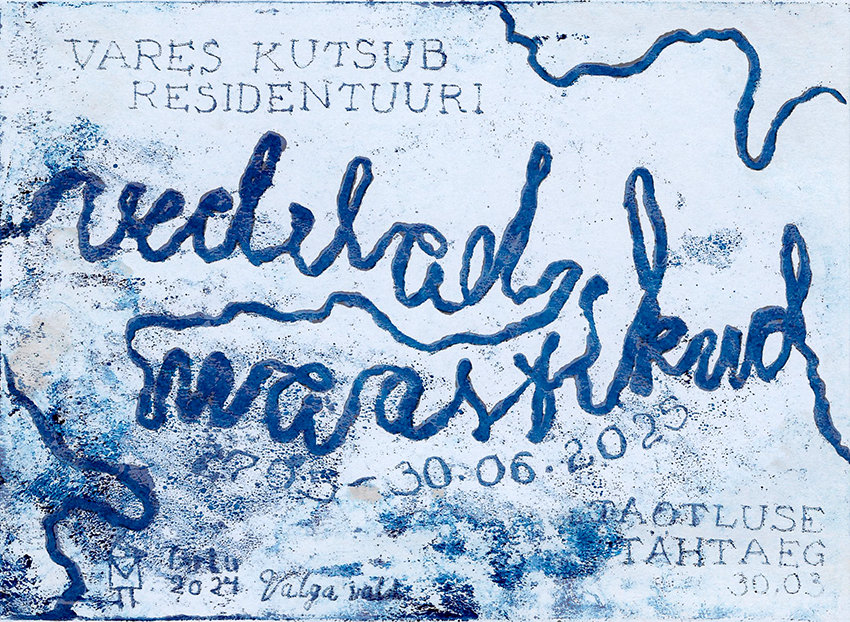 VARES KUTSUB
RESIDENTUURI
vedelad
maastikud
30.06.2025
TAOTLUSE
TÄHTAEG
30.03
Tartu
2024 Valga vald